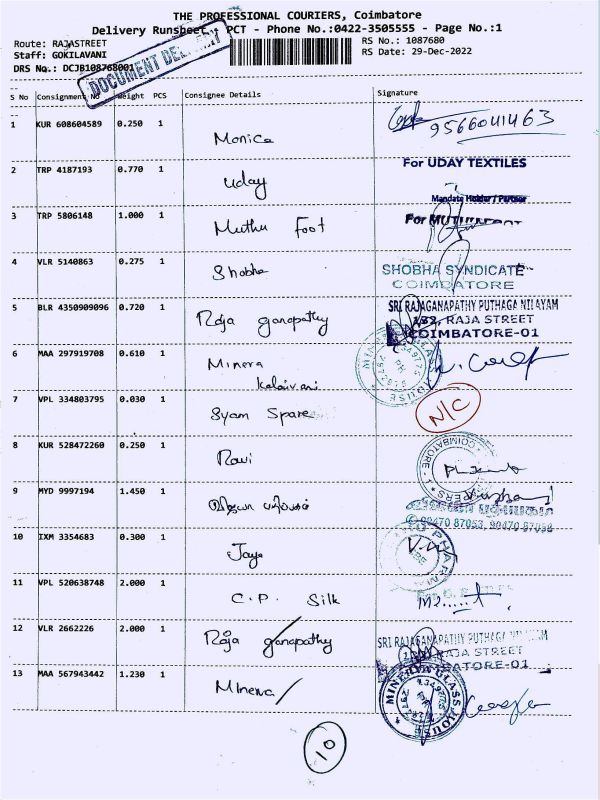 THE PROFESSIONAL COURIERS, Coimbatore
Delivery Runsheet, PCT - Phone No.:0422-3505555 - Page No.:1
Route: RAJASTREET
RS No.: 1087680
Staff: GOKILAVANI
RS Date: 29-Dec-2022
DRS No.: DCJB108768001
DOCUMENT
S No Consignment No Weight PCS Consignee Details Signature
1 KUR 608604589 0.250 1 Monica 9566041463
2 TRP 4187193 0.770 1 uday For UDAY TEXTILES
Mandate Holder / Partner
3 TRP 5806148 1.000 1 Muthu Foot For
4 VLR 5140863 0.275 1 Shobha SHOBHA SYNDICATE
COIMBATORE
5 BLR 4350909096 0.720 1 Raja ganapathy SRI RAJAGANAPATHY PUTHAGA NILAYAM
182, RAJA STREET
COIMBATORE-01
6 MAA 297919708 0.610 1 Minera
Kalaivani
7 VPL 334803795 0.030 1 Syam Spare N/C
8 KUR 528472260 0.250 1 Ravi
COIMBATORE
9 MYD 9997194 1.450 1
90470 87053, 90470 87058
10 IXM 3354683 0.300 1 Jaya
PHARMA
11 VPL 520638748 2.000 1 C.P. Silk
12 VLR 2662226 2.000 1 Raja ganapathy SRI RAJAGANAPATHY PUTHAGA
RAJA STREET
COIMBATORE-01
13 MAA 567943442 1.230 1 Minerva MINERVA GLASS HOUSE
10